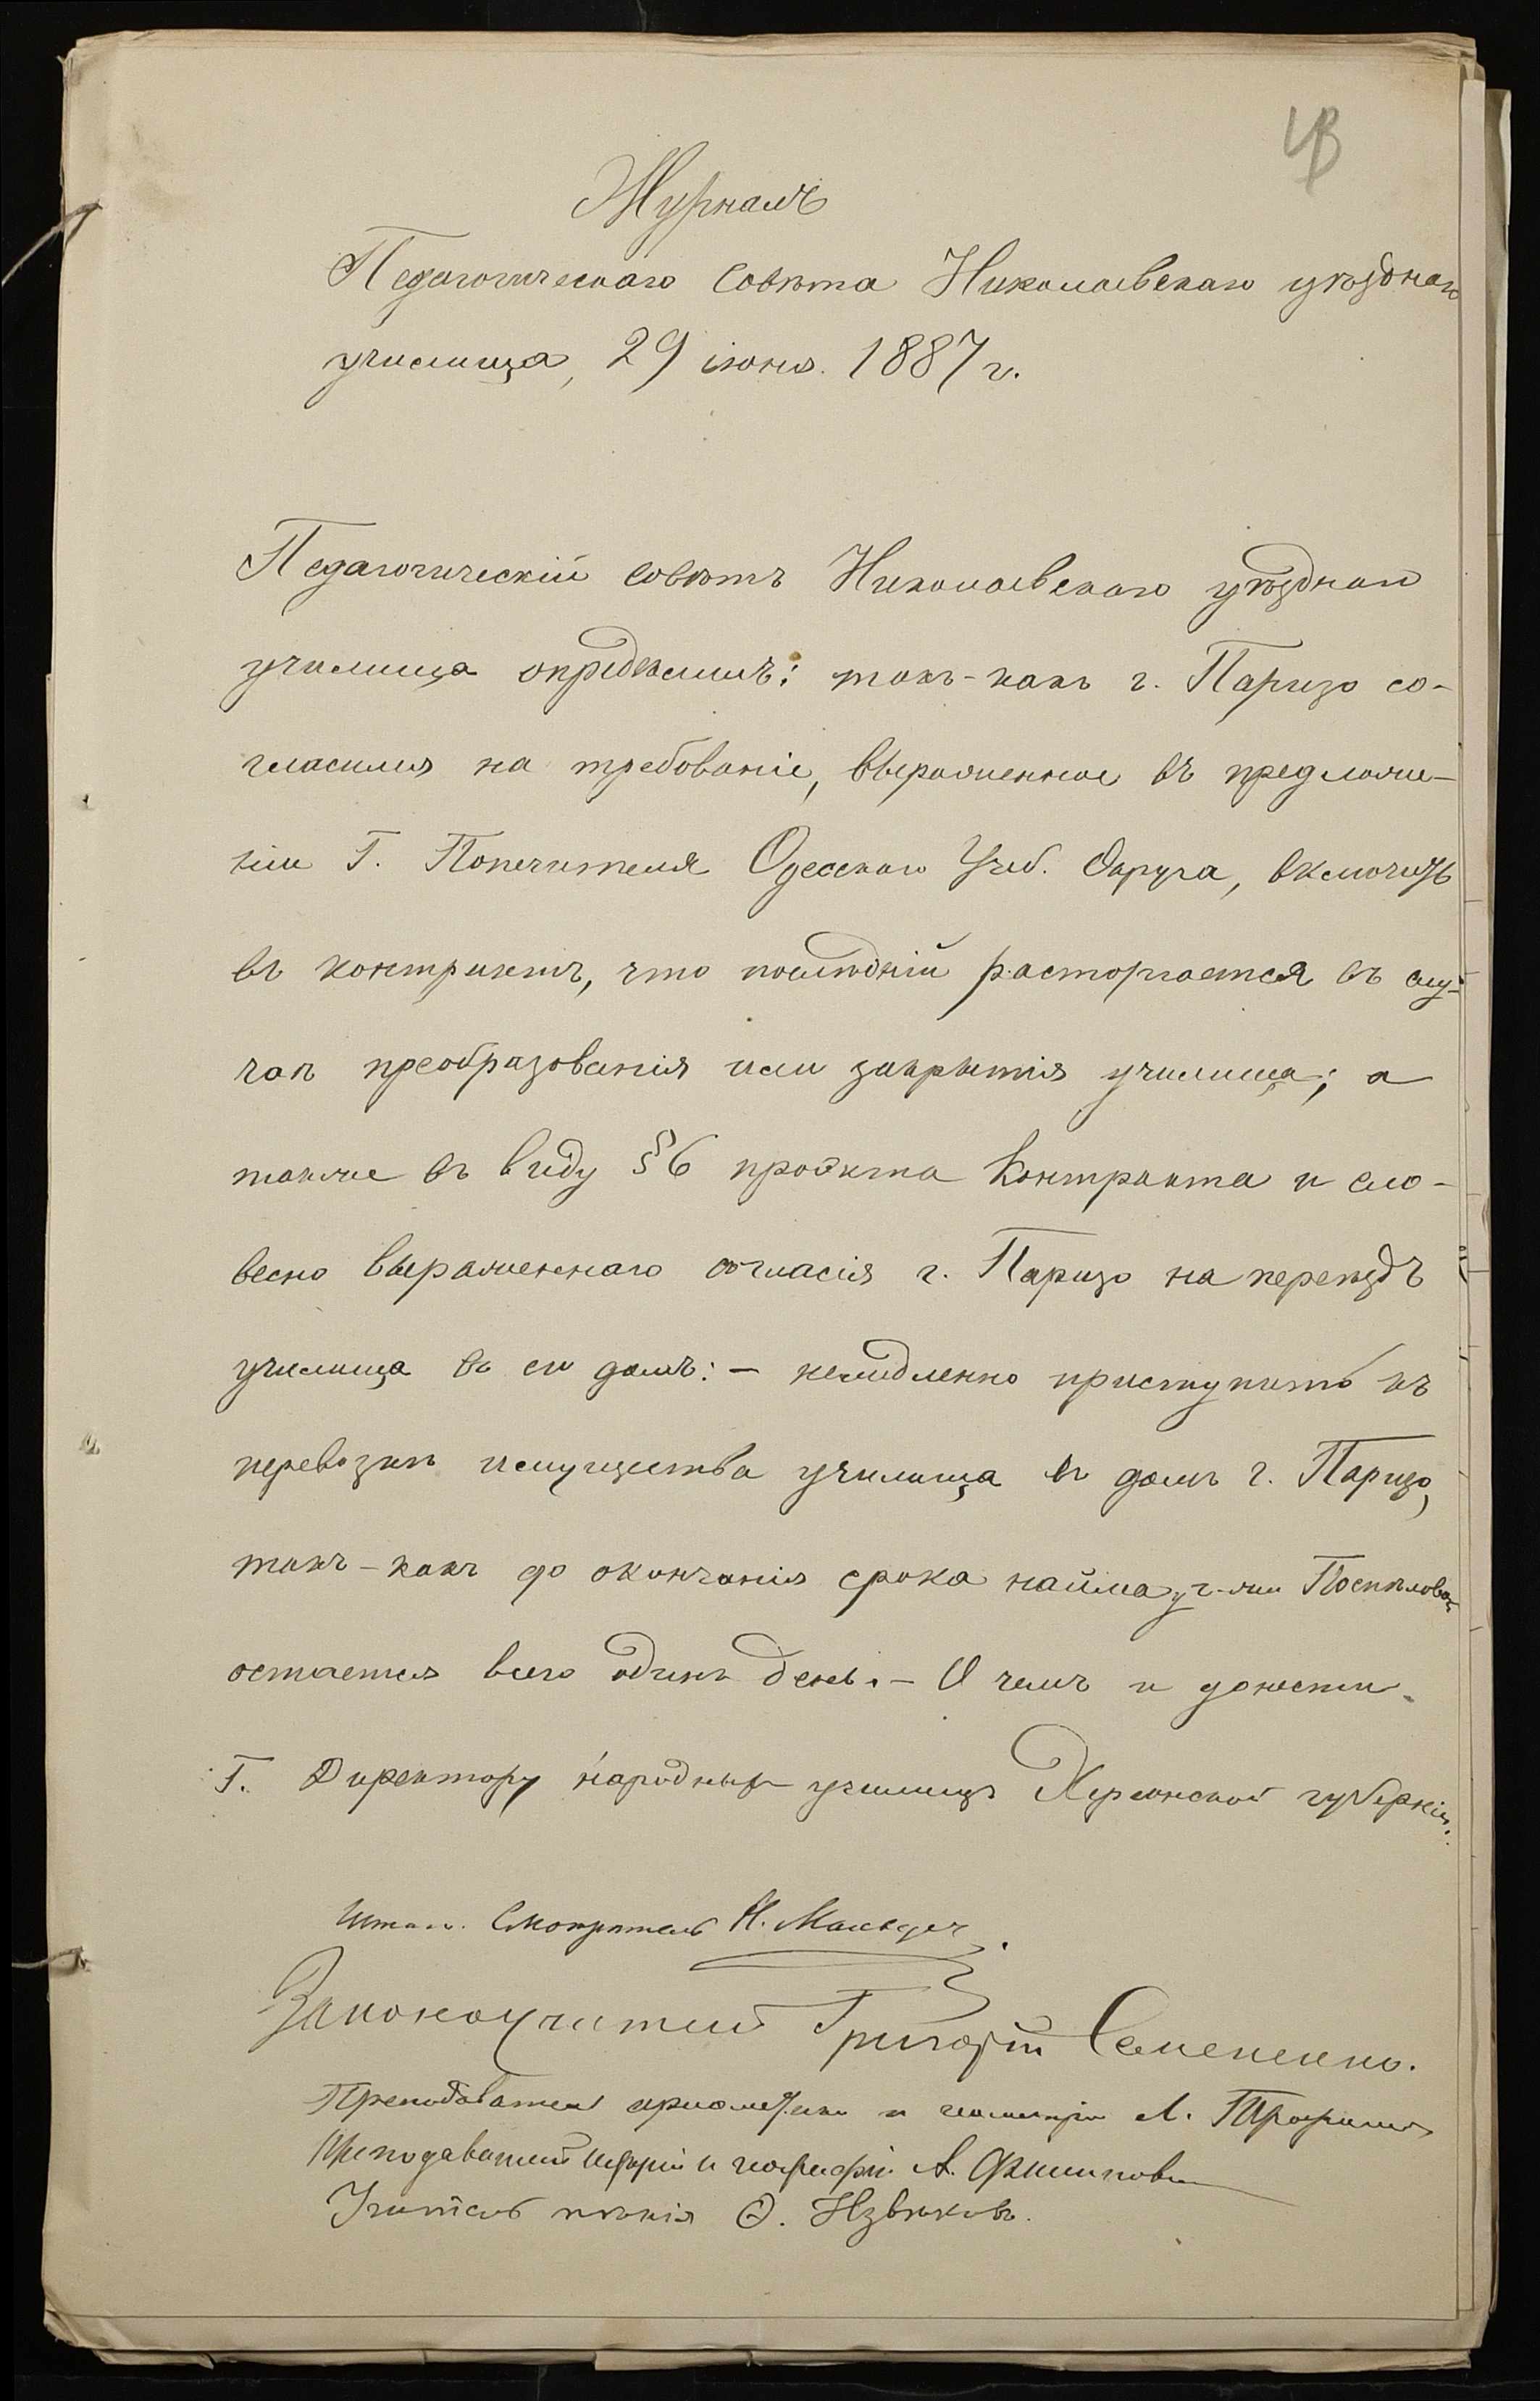 Журналъ
Педагогическаго Совѣта Николаевскаго уѣзднаго
училища, 29 іюня 1887 г.
Педагогическій Совѣтъ Николаевскаго уѣзднаго
училища опредѣлилъ: такъ-какъ г. Паризо со-
гласился на требованіе, выраженное въ предложе-
ніи Г. Попечителя Одесскаго Учеб. Округа, включить
въ контрактъ, что послѣдній расторгается въ слу-
чаѣ преобразованія или закрытія училища; а
также въ виду §6 проэкта контракта и сло-
весно выраженнаго согласія г. Паризо на переѣздъ
училища въ его домъ: – немедленно приступить къ
перевозкѣ имущества училища въ домъ г. Паризо,
такъ-какъ до окончанія срока найма у г-жи Поспѣловой
остается всего одинъ день. – О чемъ и донести
Г. Директору народныхъ училищъ Херсонской губерніи.
Штат. Смотритель Н.
Законоучитель Григорій Семененко.
Преподаватель ариѳметики и геометріи Л.
Преподаватель исторіи и географіи А. Филиповъ
Учитель пѣнія Ѳ. Извѣковъ.